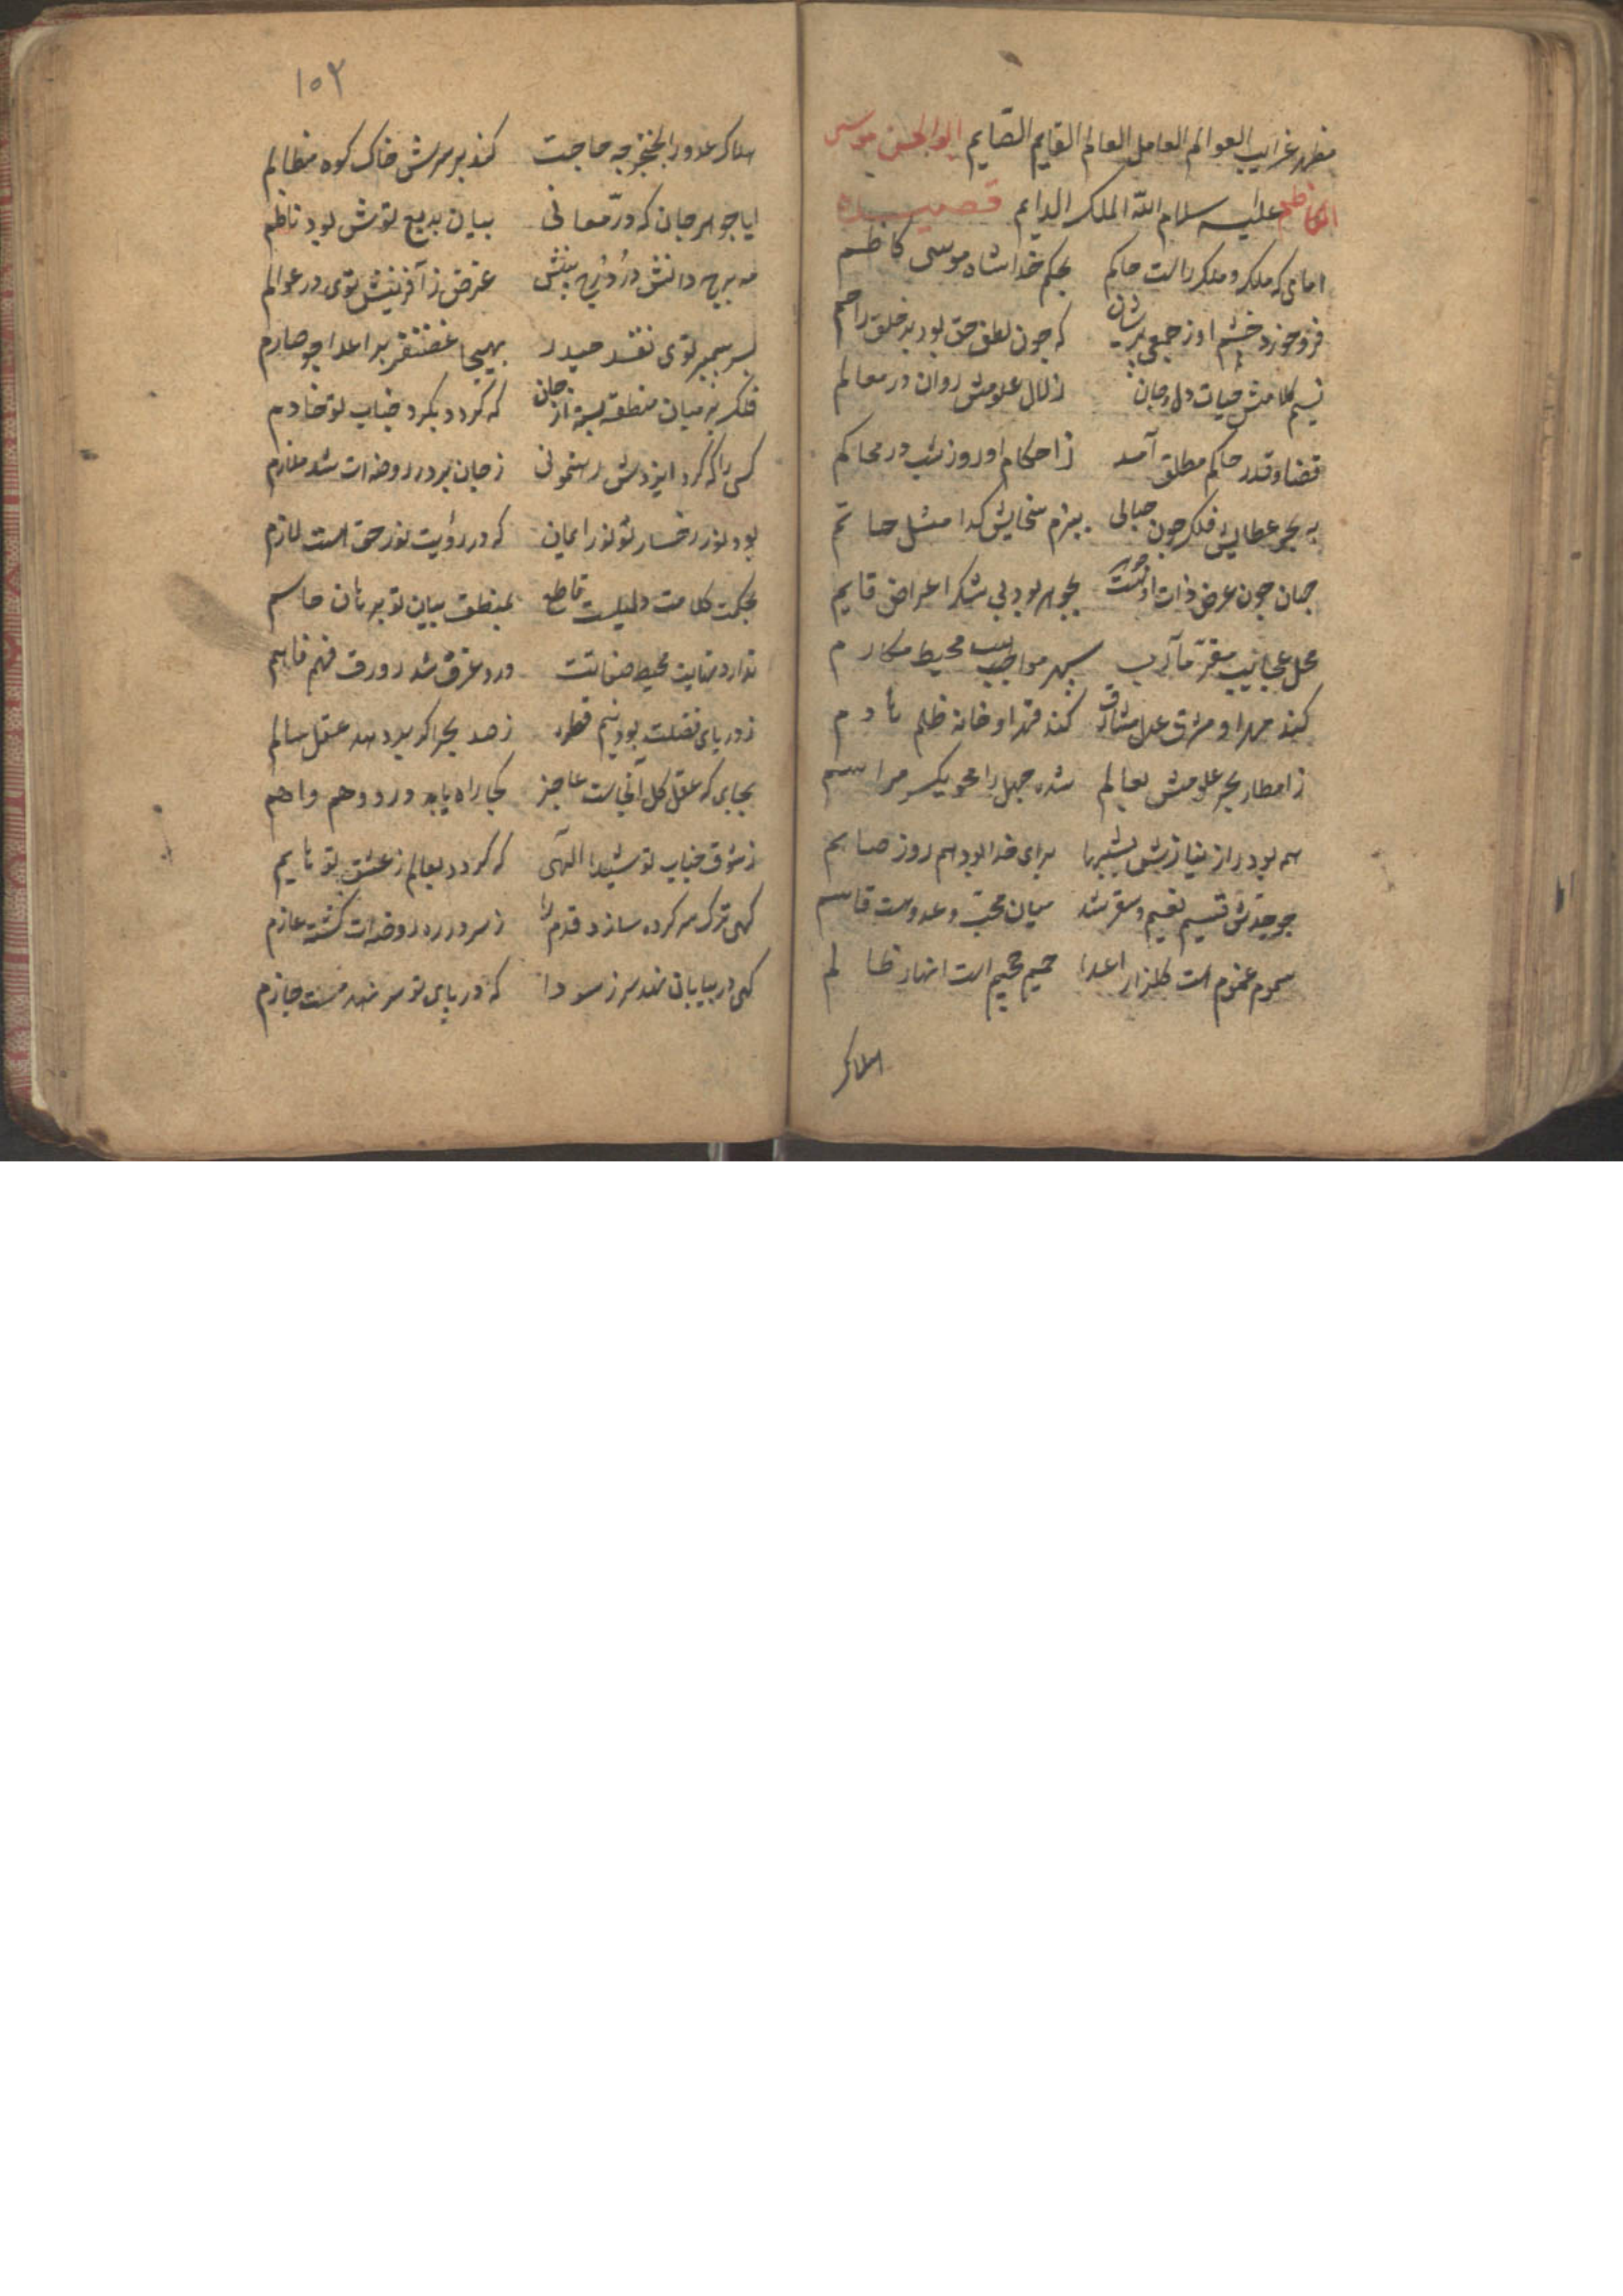 مظهر غرایب العوالم العامل العالم القایم الصّایم ابو الحسن موسی
الکاظم علیه سلام الله الملک الدایم قصیده
امامی که ملک و ملک راست حاکم بحکم خدا شاه موسی کاظم
فرو خورد خشم او ز جمعی پریشان که چون لطف حق بود بر خلق راحم
نسیم کلامش حیات دل و جان زلال علومش روان در معالم
قضا و قدر حاکم مطلق آمد ز احکام او روز و شب در محاکم
به بحر عطایش فلک چون حبابی ببزم سخایش گدا مثل حاتم
جهان چون عرض ذات او هست بجوهر بود بی شک اعراض قایم
محل عجایب مقرّ مآرب سپهر مواهب محیط مکارم
کند مهر او مشرق عدل شارق کند قهر او خانه ظلم هادم
ز امطار بحر علومش بعالم شده جهل را محو یکسر مراسم
همه بود راز و نیازش بشبها برای خدا بود هم روز صایم
چو جدّش قسیم نعیم و سقر شد میان محبّ و عدوست قاسم
سموم غموم است گلزار اعدا حمیم جحیم است انهار ظالم
هلاک
۱۵۲
هلاک عدو را بخنجر چه حاجت کند بر سرش خاک کوه مظالم
ایا جوهر جان که درّ معانی بیان بدیع توش بود ناظم
مه برج دانش در درج بینش غرض ز آفرینش توی در عوالم
بسر پیمبر توی نقد حیدر بهیجا غضنفر بر اعدا چو صارم
فلک بر میان منطقه بسته از جان که گردد بگرد جناب تو خادم
کسی را که کرد ایزدش رهنمونی ز جان بر در روضه ات شد ملازم
بود نور رخسار تو نور ایمان که در رؤیت نور حق است لازم
بحکمت کلامت دلیلست قاطع بمنطق بیان تو برهان حاسم
ندارد نهایت محیط صفاتت درو غرق شد زورق فهم فاهم
ز دریای فضلت بود نیم قطره ز صد بحر اگر عقل سالم
بجایی که عقل کل آنجاست عاجز کجا راه یابد درو وهم واهم
ز شوق جناب تو شیدا الهی که گردد بعالم ز عشق تو هایم
گهی ترک سر کرده سازد قدم را ز سر در ره روضه ات گشته عازم
گهی در بیابان نهد سر ز سودا که در پای تو سر نهد هست جازم